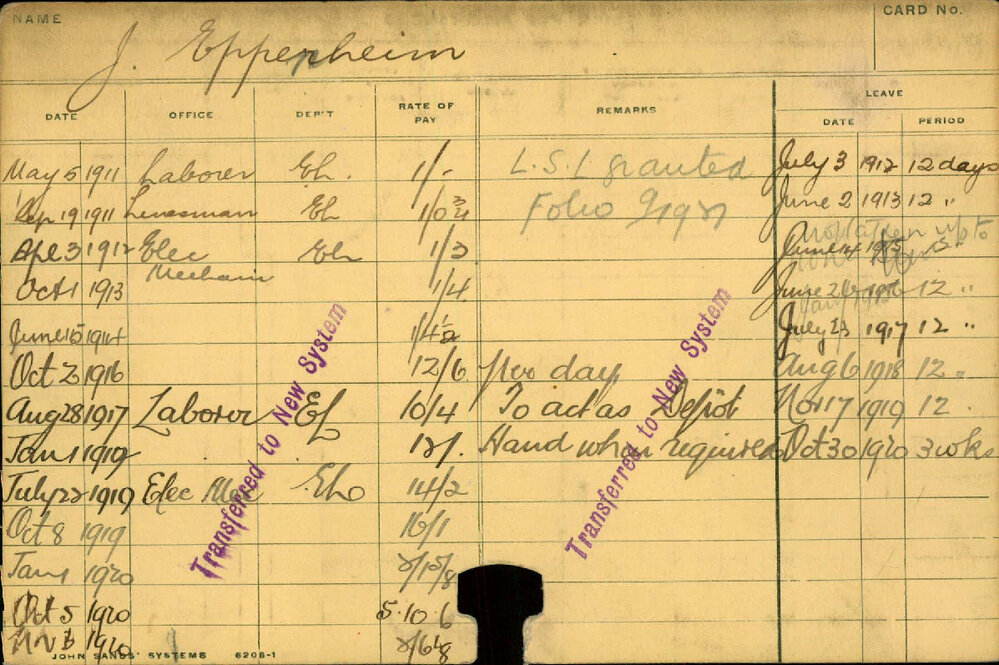 NAME
CARD No.
J. Eppenheim
DATE OFFICE DEP'T RATE OF PAY REMARKS LEAVE
DATE PERIOD
May 5 1911 Laborer Eh. 1/- L.S.L granted July 3 1912 12 days
Sep 19 1911 Linesman Eh 1/0 3/4 Folio June 2 1913 12 "
Apl 3 1912 Elec Mechanic Eh 1/3 12 "
Oct 1 1913 1/4 June 1916 12 "
June 15 1914 1/4 1/2 July 1917 12 "
Oct 2 1916 12/6 per day Aug 6 1918 12 "
Aug 28 1917 Laborer 10/4 To act as Depôt Nov 17 1919 12 "
Jan 1 1919 12/. Hand when required Oct 30 1920 3 wks
July 22 1919 Elec Mec 14/2
Oct 8 1919 16/1
Jan 1 1920
Oct 5 1920 5.10.6
1920
Transferred to New System
Transferred to New System
JOHN SANDS' SYSTEMS 6208-1